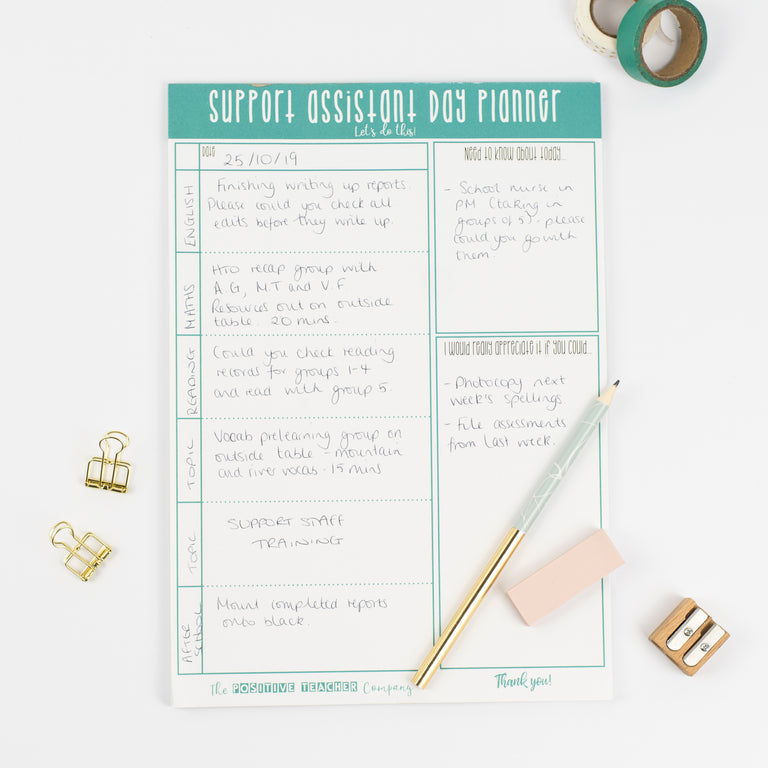 SUPPORT ASSISTANT DAY PLANNER
Let's do this!
DATE 25/10/19
ENGLISH
Finishing writing up reports.
Please could you check all
edits before they write up.
MATHS
HTO recap group with
A.G, M.T and V.F
Resources out on outside
table. 20 mins.
READING
Could you check reading
records for groups 1-4
and read with group 5.
TOPIC
Vocab prelearning group on
outside table - mountain
and river vocab - 15 mins
TOPIC
SUPPORT STAFF
TRAINING
AFTER
SCHOOL
Mount completed reports
onto black.
Need to know about today...
- School nurse in
PM (taking in
groups of 5) - please
could you go with
them
I would really appreciate it if you could...
- Photocopy next
week's spellings
- File assessments
from last week.
The POSITIVE TEACHER Company
Thank you!